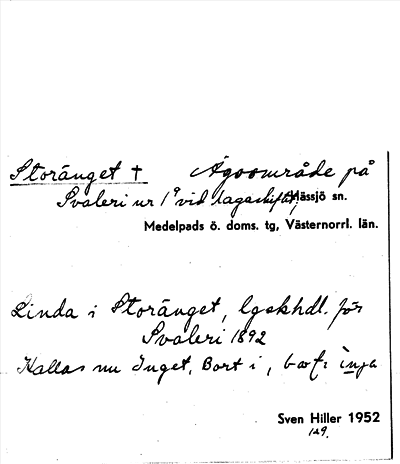 Storänget † Ägoområde på
Svaleri nr 1⁹ vid lagaskiftet, Hässjö sn.
Medelpads ö. doms. tg, Västernorrl. län.
Linda i Storänget, lgskhdl. för
Svaleri 1892
Kallas nu Inget, Bort i,
Sven Hiller 1952
129.